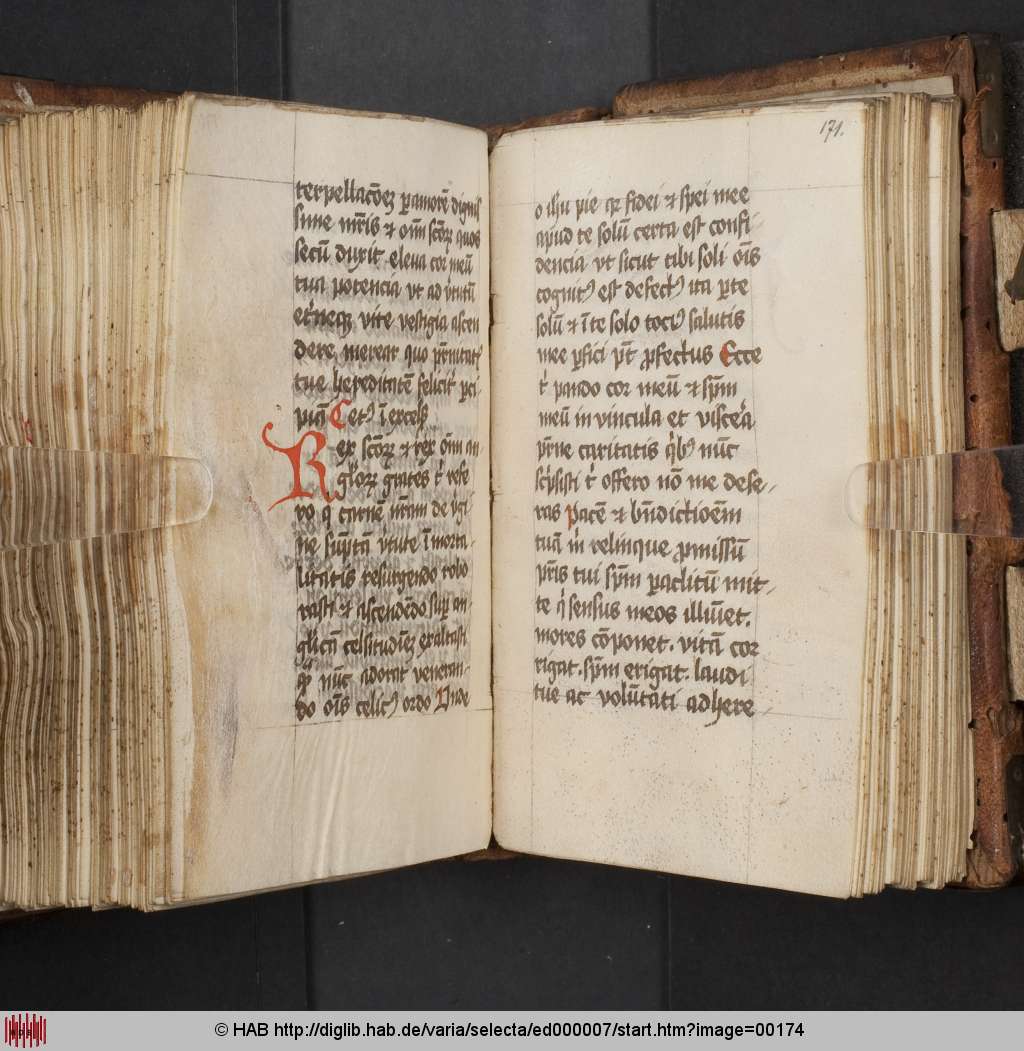 terpellacōeʒ ꝑ amorē dignis
sime mr̄is ⁊ oīm scōꝝ quos
secū duxit eleua cor meū
tua potencia vt ad v̓tutū
et̓neqꝫ vite vestigia ascen
dere merear quo p̄rnitatꝭ
tue hereditatē felicit̓ ꝑci
piā Cetꝰ ī excelẜ
Rex scōꝝ ⁊ rex oīm an
gl̓oꝝ gr̄ates t̓ refe
ro q carnē nr̄am de v̓gi
ne sūptā v̓tute ī morta
litatis resurgendo robo
rasti ⁊ ascendēdo suꝑ an
glicā celsitudīeʒ exaltasti
nūc adorat veneran
do oīs celicꝰ ordo Unde
171.
o ih̄u pie qꝛ fidei ⁊ spei mee
apud te solū certa est confi
dencia vt sicut tibi soli oīs
cognitꝰ est defectꝰ ita ꝑ te
solū ⁊ ī te solo tociꝰ salutis
mee ꝑfici pt̄ ꝓfectus Ecce
t̓ pando cor meū ⁊ spm̄
meū in vincula et viscēa
pr̄ne caritatis q̓bꝰ nūc
t̓ offero nō me dese
ras pacē ⁊ bn̄dictioēm
tuā m̓ relinque ꝓmissū
pr̄is tui spm̄ paclitū mit
te q̓ sensus meos illūet.
mores cōponet. vitā cor
rigat. spm̄ erigat. laudi
tue ac volūtati adhere
© HAB http://diglib.hab.de/varia/selecta/ed000007/start.htm?image=00174